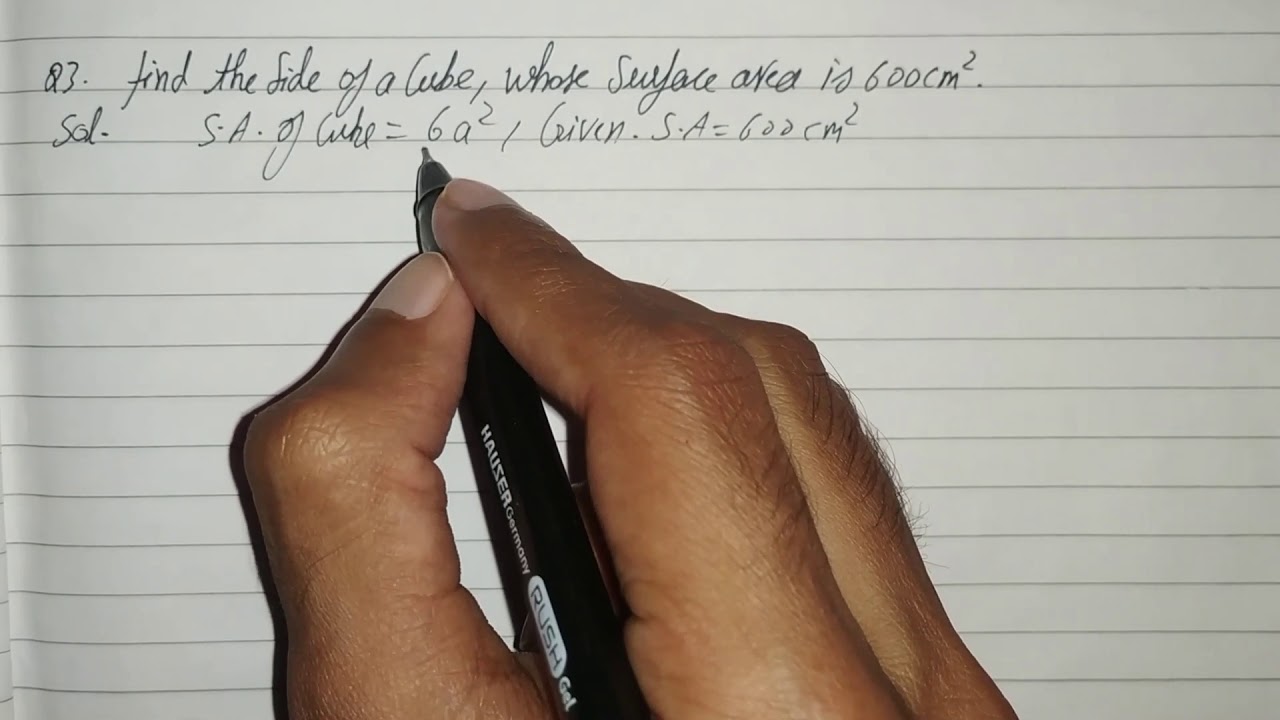 Q3. find the side of a Cube, whose Surface area is 600cm².
Sol. S.A. of Cube = 6a², Given. S.A = 600 cm²
HAUSER Germany
RUSH Gel